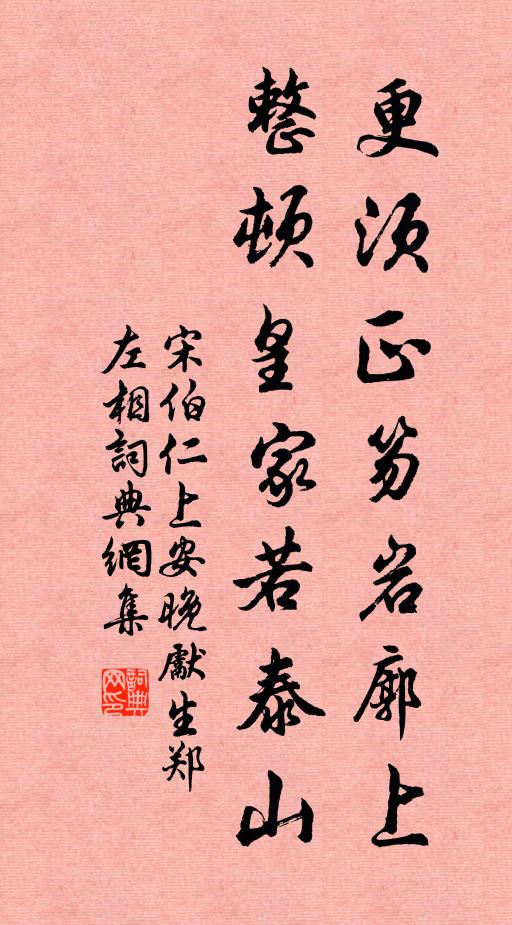 更须正笏岩廊上
整顿皇家若泰山
宋伯仁上安晚献生郑
左相詞典網集
詞典网印